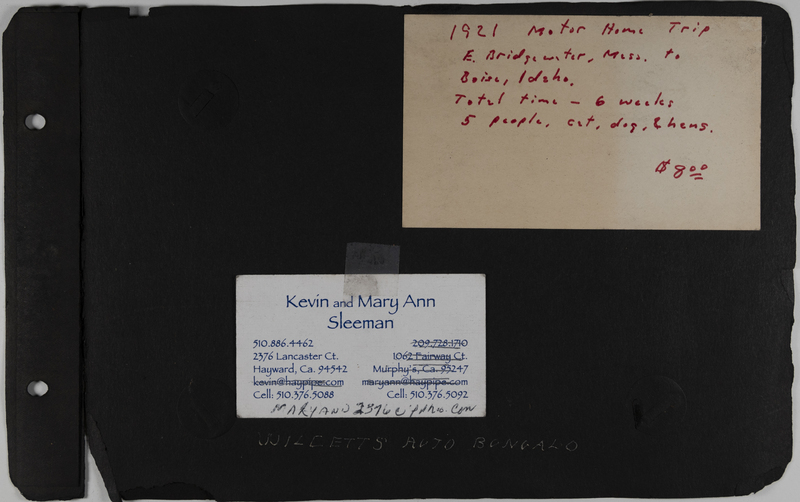 1921 Motor Home Trip
E. Bridgewater, Mass. to
Boise, Idaho.
Total time - 6 weeks
5 people, cat, dog, & hens.
$8.00
Kevin and Mary Ann
Sleeman
510.886.4462
2376 Lancaster Ct.
Hayward, Ca. 94542
kevin@haypipe.com
Cell: 510.376.5088
209.728.1710
1062 Fairway Ct.
Murphy's, Ca. 95247
maryann@haypipe.com
Cell: 510.376.5092
WILLETTS AUTO BUNGALO